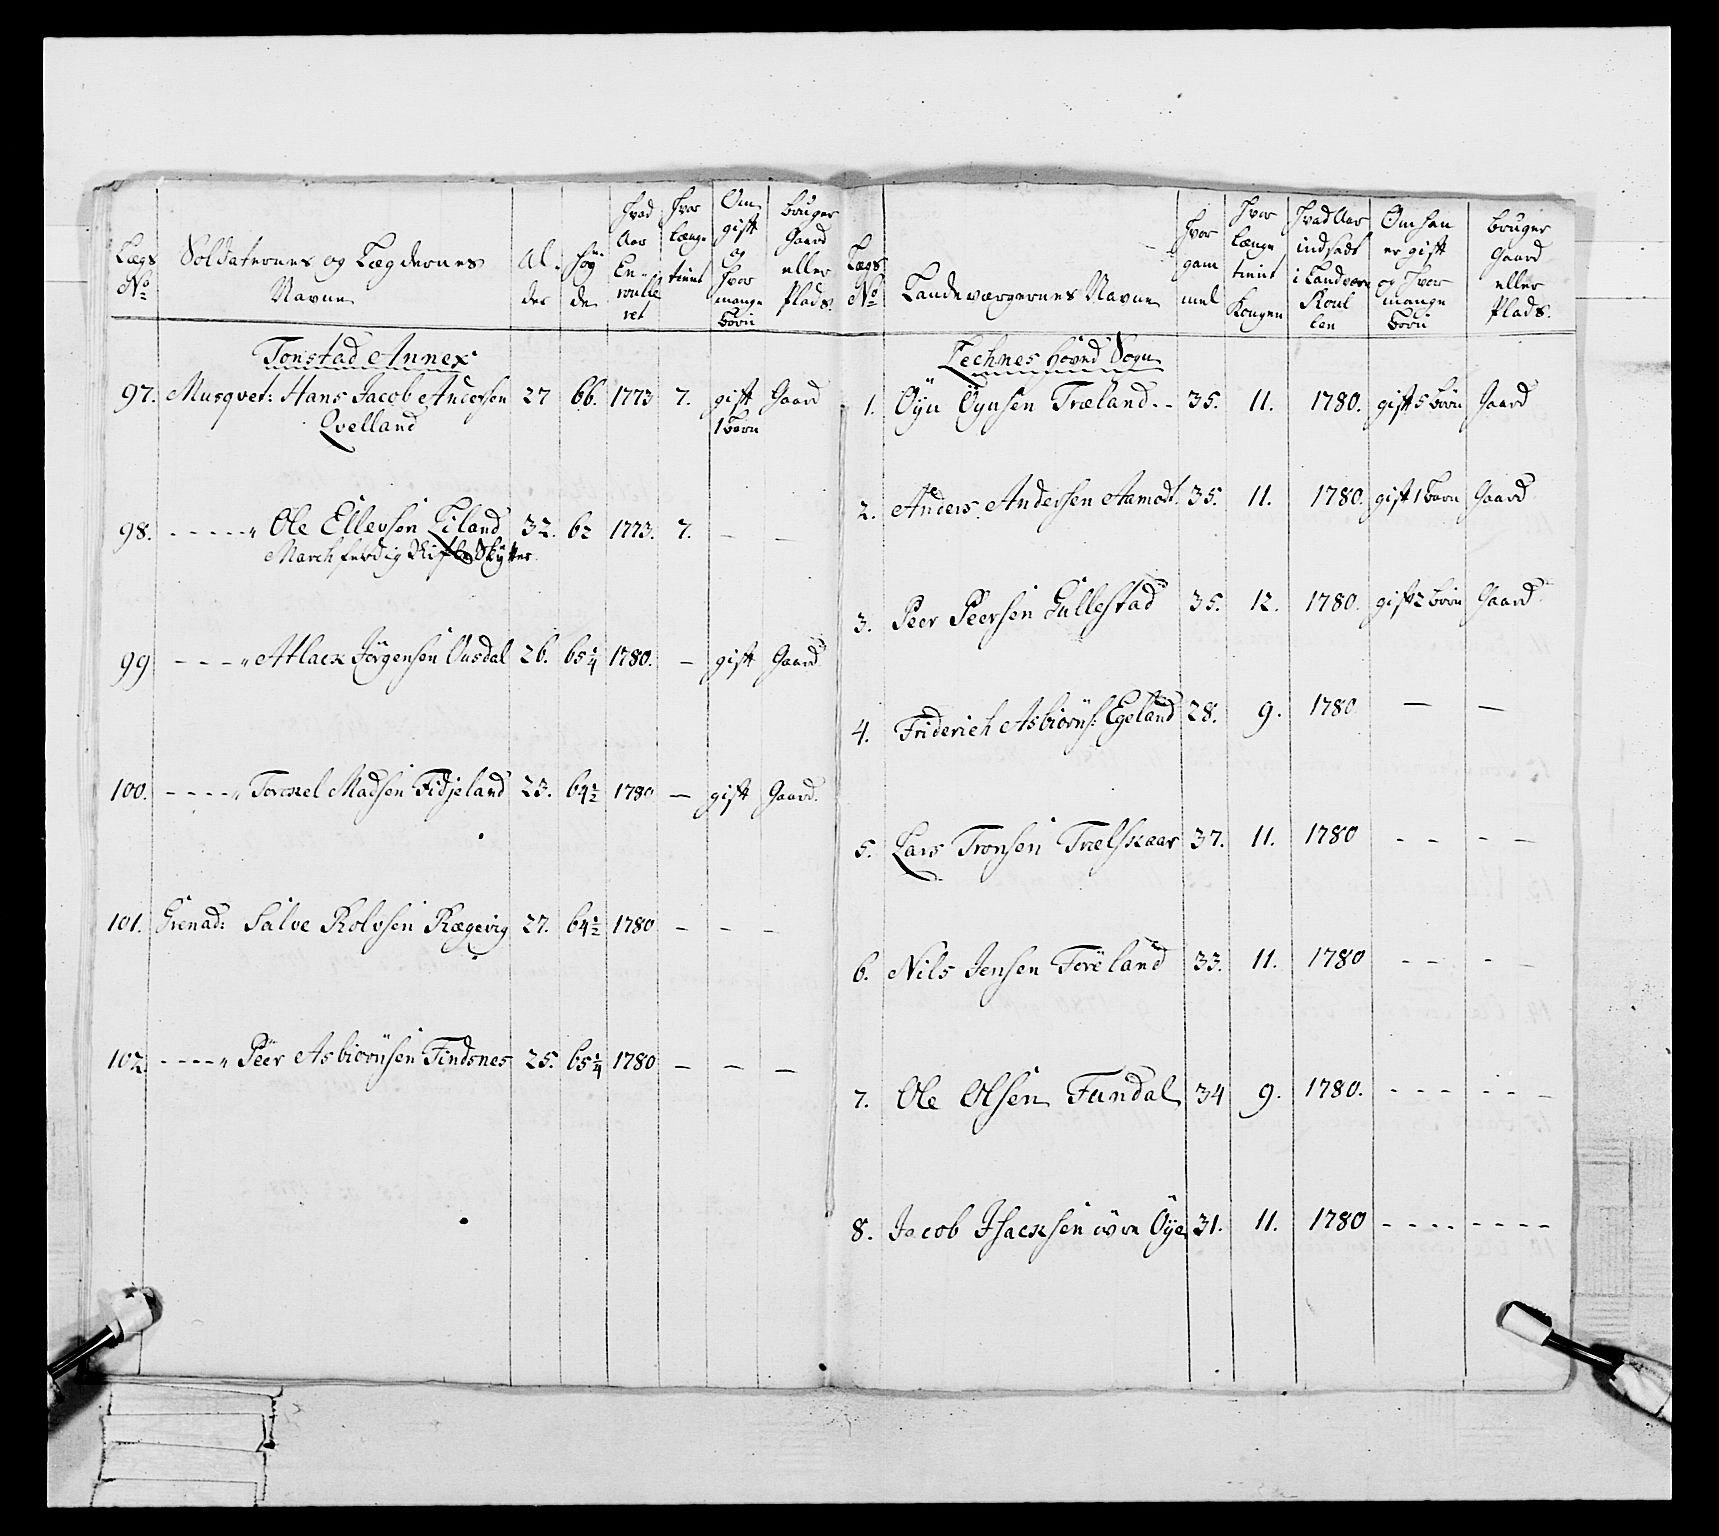 Lægs No | Soldaternes og Lægdernes Navne | Alder | Høgde | Hvad Aar Enroulleret | Hvor længe tient | Om gift og Hvor mange Børn | bruger Gaard eller Plads.
Tonstad Annex
97. Musqvet: Hans Jacob Andersen Qvelland | 27 | 66. | 1773 | 7. | gift 1 barn | Gaard
98. - - - - - " Ole Ellevsen Liland | 32. | 62 | 1773. | 7. | - | -
Marchferdig Skiflø Skytter.
99 - - - " Atlack Jörgensen Ousdal | 26. | 65 1/4 | 1780. | - | gift | Gaard
100. - - - - " Torckel Madsen Fidjeland | 23. | 64 1/2 | 1780 | - | gift | Gaard.
101. Grenad: Salve Rolvsen Rægevig | 27. | 64 1/2 | 1780 | - | - | -
102. - - - - " Peer Asbiörnsen Findsnes | 25. | 65 1/4 | 1780 | - | - | -
Lægs No | Landeværgernes Navne | Hvor gammel | Hvor længe tient Kongen | Hvad Aar indsadt i Landværn Roullen | Om han er gift og Hvor mange Börn | bruger Gaard eller Plads.
Qvechnes Hóved Sogn
1. Öyn Öynsen Træland - - | 35. | 11. | 1780. | gift 5 börn | Gaard
2. Anders Andersen Aamodt. | 35. | 11. | 1780. | gift 1 barn | Gaard
3. Peer Peersen Gullestad | 35. | 12. | 1780. | gift 2 börn | Gaard
4. Friderich Asbiörns: Egeland | 28. | 9. | 1780 | - | -
5. Lars Tronsen Trælskaar | 37. | 11. | 1780 | - - | - -
6. Nils Jensen Föreland | 33. | 11. | 1780 | - - | - -
7. Ole Olsen Fundal | 34 | 9. | 1780. | - - - | - - -
8. Jacob Isacksen övre Öye | 31. | 11. | 1780 | - - - - | - - - -